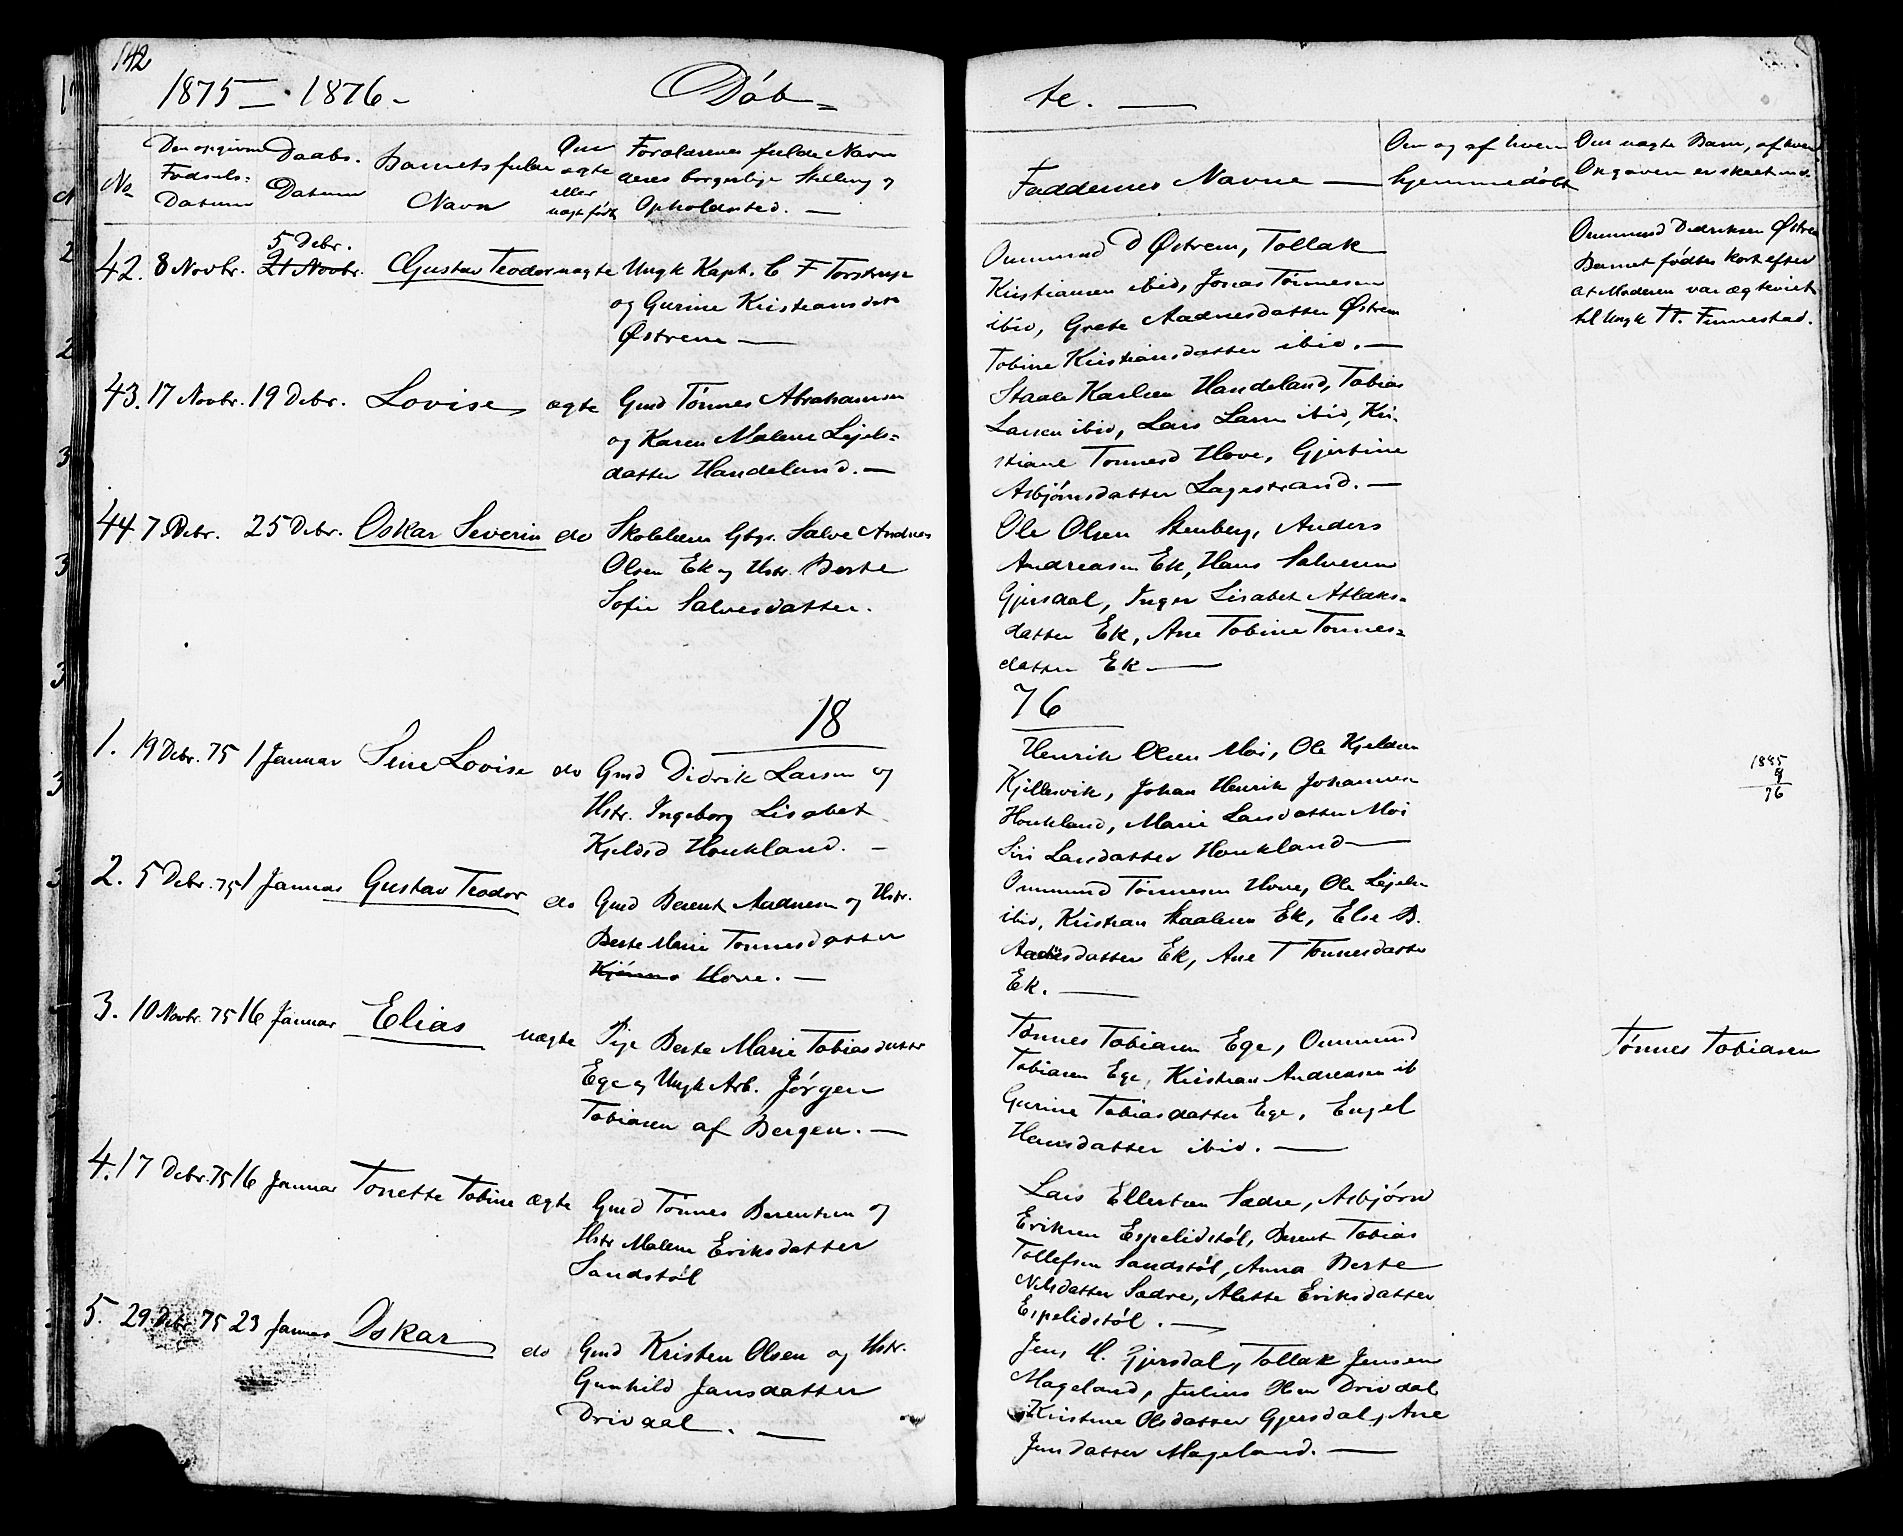 142
1875 – 1876 –
Døb=
te. —
No
Den opgivne
Fødsels=
Datum
Daabs.
Datum
Barnets fulde
Navn
Om
ægte
eller
uægte født
Forældrenes fulde Navn
deres borgerlige Stilling og
Opholdsted. —
Faddernes Navne —
Om og af hvem
hjemmedøbt
Om uægte Barn, af hvem
Opgaven er skeet md.
42. 8 Novbr. 5 Debr. 21 Novbr. Gustav Teodor uægte Ungk Kapt. C F Torstrup
og Gurine Kristiansdatr
Østrem —
Ommund D Østrem, Tollak
Kristiansen ibid, Jonas Tønnesen
ibid, Grete Aadnesdatter Østrem
Tobine Kristiansdatter ibid. —
Ommund Didriksen Østrem
Barnet fødtes kort efter
at Moderen var ægteviet
til Ungk T T. Finnestad.
43. 17 Novbr. 19 Debr. Lovise ægte Gmd Tønnes Abrahamsen
og Karen Malene Lejels=
datter Handeland. —
Staale Karlsen Handeland, Tobias
Larsen ibid, Lars Larsen ibid, Kri-
stiane Tonnesd Hove, Gjertine
Asbjørnsdatter Lagestrand. —
44 7 Debr. 25 Debr. Oskar Severin do Skolelærer Gbgr. Salve Andreas
Olsen Ek og Hstr. Berte
Sofie Salvesdatter.
Ole Olsen Stenberg, Anders
Andreasen Ek, Hans Salvesen
Gjersdal, Inger Lisabet Atlaks=
datter Ek, Ane Tobine Tonnes=
datter Ek —
18
76
1. 19 Debr. 75 1 Januar Sine Lovise do Gmd Didrik Larsen og
Hstr. Ingeborg Lisabet
Kjeldsd Houkland. —
Henrik Olsen Moi, Ole Kjeldsen
Kjellesvik, Johan Henrik Johannesen
Houkland, Marie Larsdatter Moi
Siri Larsdatter Houkland —
1885
76
2. 5 Debr. 75 1 Januar Gustav Teodor do Gmd Berent Aadnesen og Hstr.
Berte Marie Tonnesdatter
Hove. —
Ommund Tønnesen Hove, Ole Lejelsen
ibid, Kristian Staalesen Ek, Else B.
Aadnesdatter Ek, Ane T Tonnesdatter
Ek. —
3. 10 Novbr. 75 16 Januar Elias uægte Pige Berte Marie Tobiasdatter
Ege og Ungk Arb. Jørgen
Tobiasen af Bergen. —
Tønnes Tobiasen Ege, Ommund
Tobiasen Ege, Kristian Andreasen ib
Gurine Tobiasdatter Ege, Engel
Hansdatter ibid. —
Tønnes Tobiasen
4. 17 Debr. 75 16 Januar Tonette Tobine ægte Gmd Tønnes Berentsen og
Hstr Malene Eriksdatter
Sandstøl
Lars Ellertsen Sædre, Asbjørn
Eriksen Espelidstøl, Berent Tobias
Tollefsen Sandstøl, Anna Berte
Nilsdatter Sædre, Alette Eriksdatter
Espelidstøl. —
5. 29 Debr 75 23 Januar Oskar do Gmd Kristen Olsen og Hstr.
Gunhild Jansdatter
Drivdal. —
Jens H. Gjersdal, Tollak Jensen
Mageland, Julius Olsen Drivdal
Kristine Olsdatter Gjersdal, Ane
Jensdatter Mageland. —